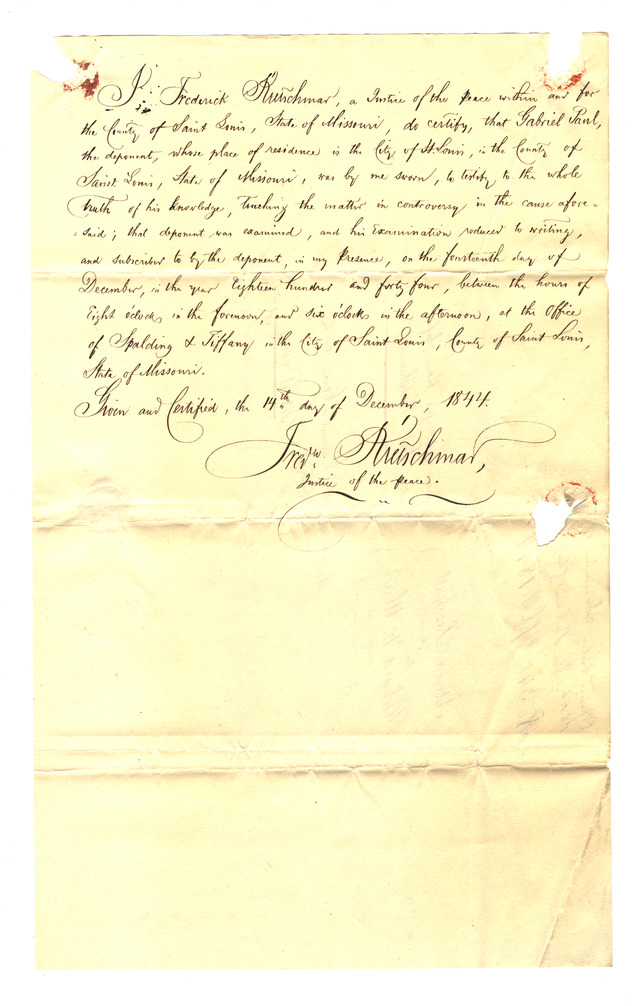 I, Frederick Kretschmar, a Justice of the peace within and for
the County of Saint Louis, State of Missouri, do certify, that Gabriel Paul,
the deponent, whose place of residence is the City of St. Louis, in the County of
Saint Louis, State of Missouri, was by me sworn, to testify to the whole
truth of his knowledge, touching the matter in controversy in the cause afore=
=said; that deponent was examined, and his Examination reduced to writing,
and subscribed to by the deponent, in my Presence, on the fourteenth day of
December, in the year Eighteen hundred and forty four, between the hours of
Eight o'clock in the forenoon, and six o'clock in the afternoon, at the Office
of Spalding & Tiffany in the City of Saint Louis, County of Saint Louis,
State of Missouri.
Given and Certified, the 14th day of December, 1844.
Fred.k Kretschmar,
Justice of the peace.